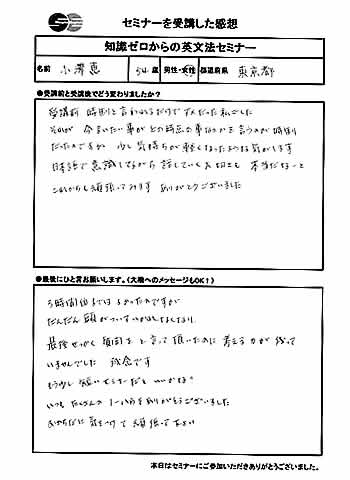 セミナーを受講した感想
知識ゼロからの英文法セミナー
名前 小澤 恵 34歳 男性・女性 都道府県 東京都
●受講前と受講後でどう変わりましたか?
受講前 時制と言われるだけで
それが 今言いたい事がどの時点の事なのかを言うのが時制
だったのですが 少し気持ちが軽くなったような気がします
日本語で意識してながら話していく 本当だなーと
これからも頑張ってみます ありがとうございました
●最後にひと言お願いします。(大機へのメッセージもOK!)
3時間位までは よかったのですが
だんだん頭が
最後せっかく質問を と言って頂いたのに 考える力が残って
いませんでした 残念です
もう少し短いセミナーだと いいかな。
いつも たくさんの ありがとうございました
気をつけて頑張って下さい
本日はセミナーにご参加いただきありがとうございました。